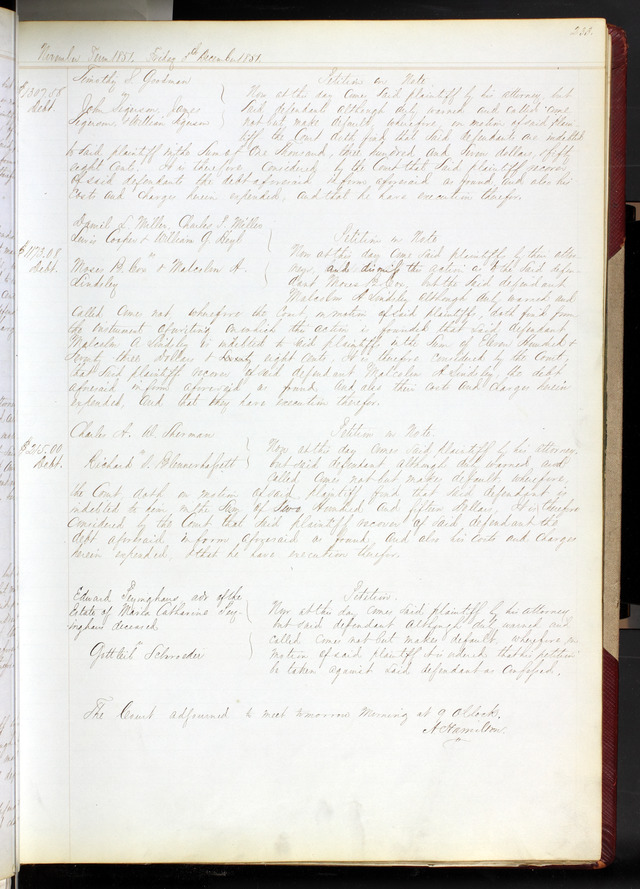 233.
November Term 1851. Friday 5th December 1851.
Timothy S. Goodman Petition on Note
$1307.58 Debt. Now at this day comes said plaintiff by his attorney, but
John James said defendants although duly warned and called come
& William not but make default, wherefore on motion of said plain-
tiff the Court doth find that said defendants are indebted
to said plaintiff in the Sum of One Thousand, three hundred and Seven dollars & fifty
eight Cents. It is therefore Considered by the Court that said plaintiff recover
of said defendants the debt aforesaid in form aforesaid as found, and also his
Costs and Charges herein expended, and that he have execution therefor.
Daniel L. Miller, Charles J. Miller
Lewis Cooper & William G. Petition on Note
$1173.08 Debt. Now at this day comes said plaintiffs by their attor-
Moses B. Cox & Malcolm A. neys, and dismiss the action as to the said defen-
Lindsley dant Moses B. Cox, but the said defendant
Malcolm A. Lindsley although duly warned and
Called come not, wherefore the Court, on motion of said plaintiffs, doth find from
the instrument of writing on which the action is founded that said defendant
Malcolm A. Lindsley is indebted to said plaintiffs in the Sum of Eleven Hundred &
Seventy three dollars & eight cents, It is therefore considered by the Court,
that said plaintiffs recover of said defendant Malcolm A. Lindsley the debt
aforesaid in form aforesaid as found, and also their costs and charges herein
expended, and that they have execution therefor.
Charles A. W. Sherman Petition on Note.
$215.00 Debt. Now at this day comes said plaintiff by his attorney,
Richard S. Blennerhassett but said defendant although duly warned, and
called comes not but makes default wherefore,
the Court, doth on motion of said plaintiff find that said defendant is
indebted to him in the Sum of Two Hundred and fifteen Dollars, It is therefore
Considered by the Court that said plaintiff recover of said defendant the
debt aforesaid in form aforesaid as found, and also his costs and charges
herein expended & that he have execution therefor.
Edward adr of the Petition.
Estate of Maria Catharine Now at this day comes said plaintiff by his attorney
deceased but said defendant although duly warned and
called comes not but makes default, wherefore, on
Gottlieb Schroeder motion of said plaintiff it is ordered that his petition
be taken against said defendant as Confessed.
The Court adjourned to meet tomorrow Morning at 9 o'Clock.
A Hamilton